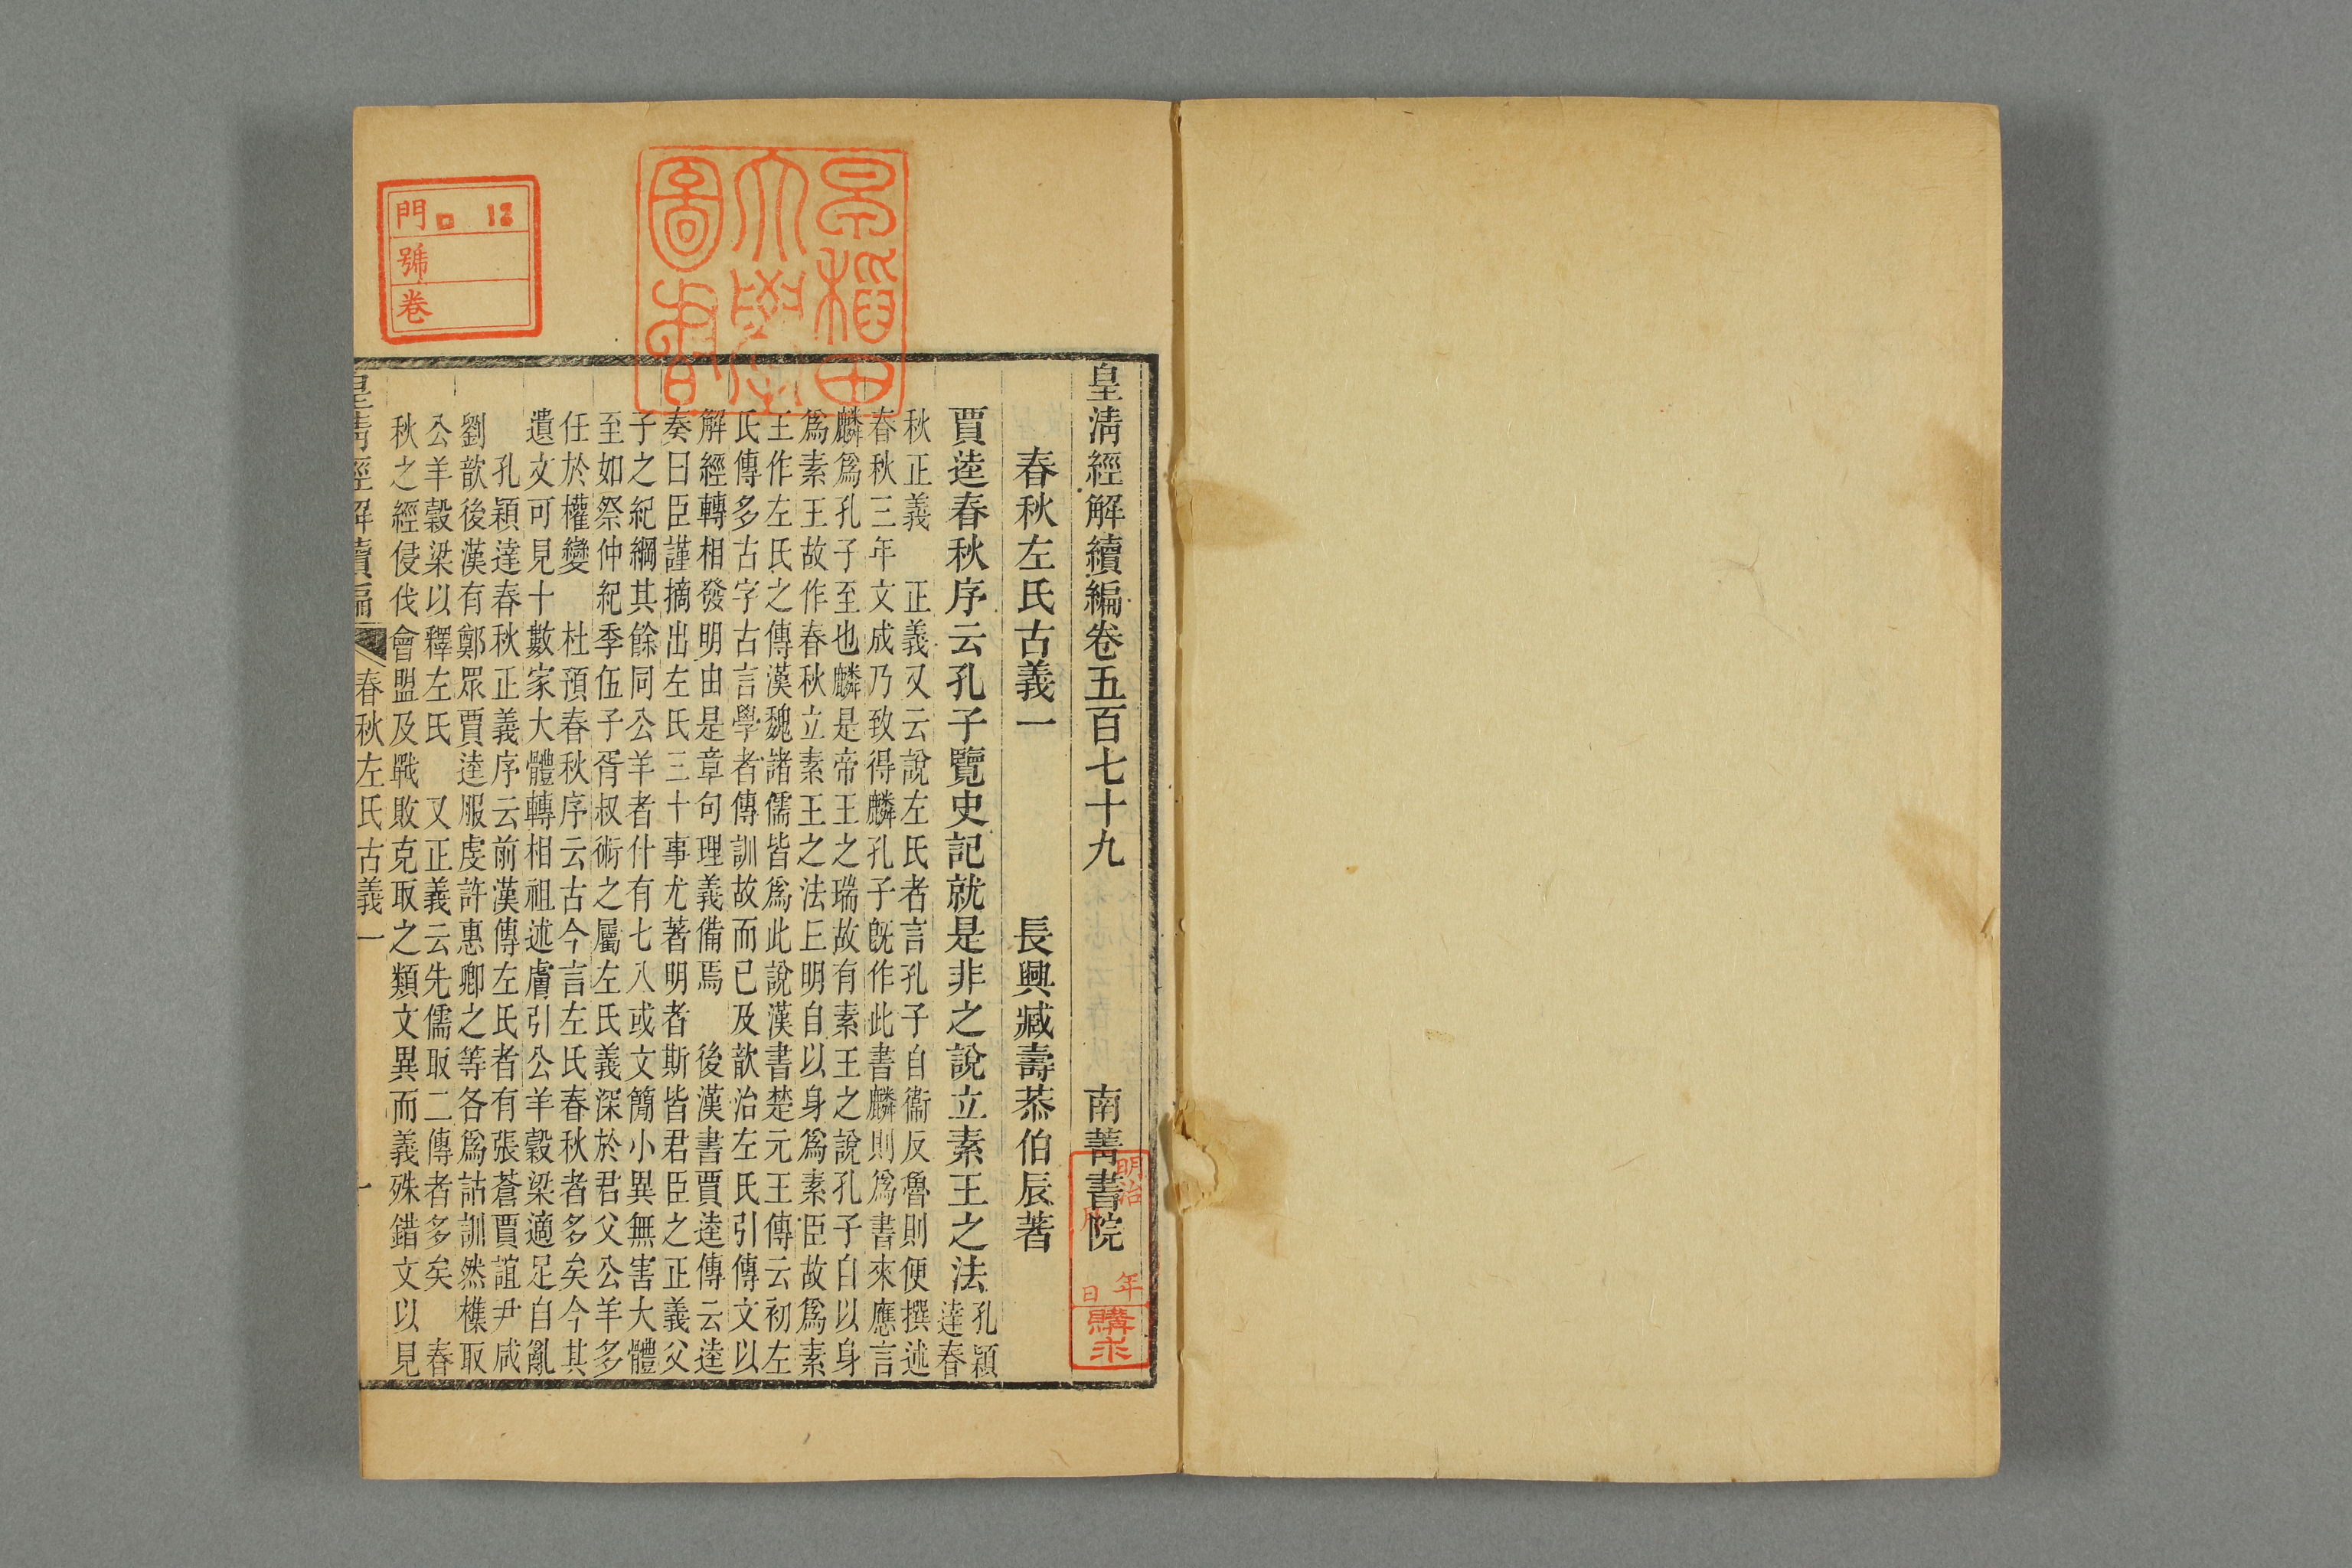 皇清經解續編卷五百七十九
南菁書院
春秋左氏古義一
長興臧壽恭伯辰著
賈逵春秋序云孔子覽史記就是非之說立素王之法
孔穎
達春
秋正義 正義又云說左氏者言孔子自衞反魯則便撰述
春秋三年文成乃致得麟孔子旣作此書麟則爲書來應言
麟爲孔子至也麟是帝王之瑞故有素王之說孔子自以身
爲素王故作春秋立素王之法丘明自以身爲素臣故爲素
王作左氏之傳漢魏諸儒皆爲此說漢書楚元王傳云初左
氏傳多古字古言學者傳訓故而已及歆治左氏引傳文以
解經轉相發明由是章句理義備焉 後漢書賈逵傳云逵
奏曰臣謹摘出左氏三十事尤著明者斯皆君臣之正義父
子之紀綱其餘同公羊者什有七八或文簡小異無害大體
至如祭仲紀季伍子胥叔術之屬左氏義深於君父公羊多
任於權變 杜預春秋序云古今言左氏春秋者多矣今其
遺文可見十數家大體轉相祖述膚引公羊穀梁適足自亂
孔穎達春秋正義序云前漢傳左氏者有張蒼賈誼尹咸
劉歆後漢有鄭眾賈逵服虔許惠卿之等各爲詁訓然樵取
公羊穀梁以釋左氏 又正義云先儒取二傳者多矣 春
秋之經侵伐會盟及戰敗克取之類文異而義殊錯文以見
皇清經解續編
春秋左氏古義一
一
早稻田
大學
圖書
門 口 12
號
卷
明治
年
月
日
購求